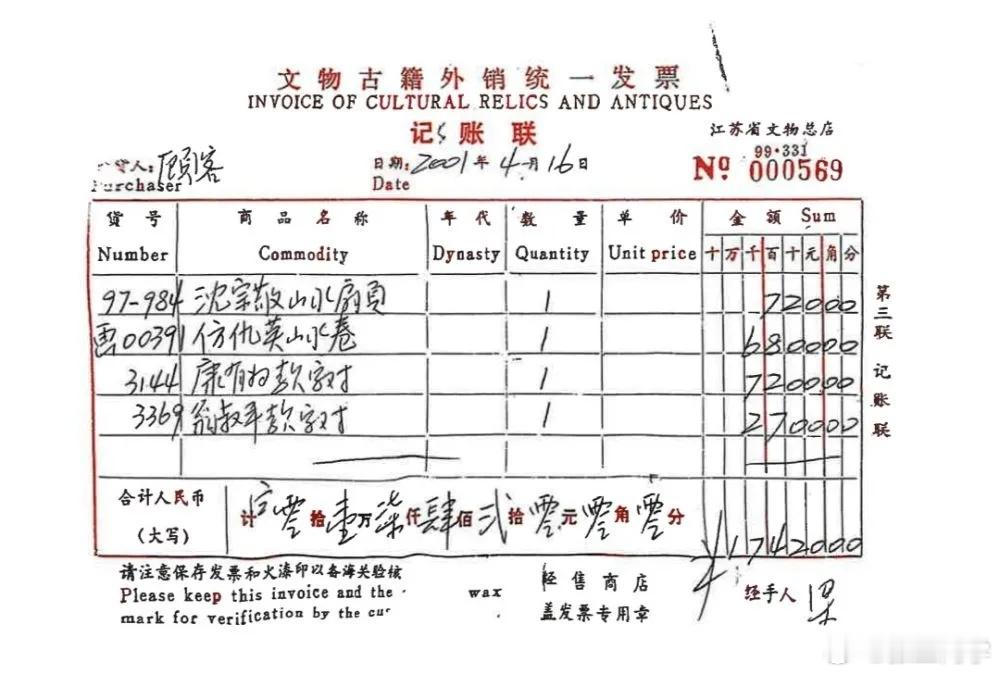 文物古籍外销统一发票
INVOICE OF CULTURAL RELICS AND ANTIQUES
记账联
江苏省文物总店
99·331
货人:顾客
Purchaser
日期:2001年4月16日
Date
Nº 000569
货号 商品名称 年代 数量 单价 金额 Sum
Number Commodity Dynasty Quantity Unit price 十万千百十元角分
97-984 沈宗敬山水扇页 1 72000
画00391 仿仇英山水卷 1 680000
3144 康有为款字对 1 720000
3369 翁叔平款字对 1 270000
合计人民币
(大写)
计 零拾壹万柒仟肆佰贰拾零元零角零分 ¥1742000
请注意保存发票和火漆印以备海关验核
Please keep this invoice and the wax
mark for verification by the cus
经售商店
盖发票专用章
经手人 梁
第三联 记账联